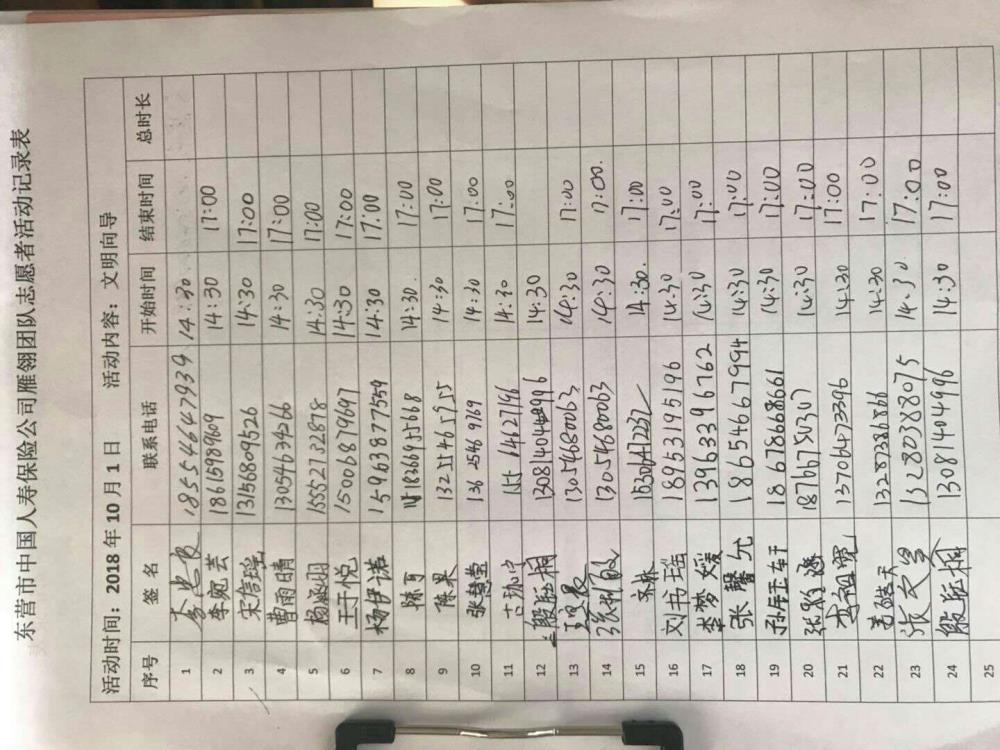 东营市中国人寿保险公司雁翎团队志愿者活动记录表
活动时间：2018年10月1日 活动内容：文明向导
序号 签 名 联系电话 开始时间 结束时间 总时长
1 李忠良 18554647939 14:30
2 李宛芸 18615989609 14:30 17:00
3 宋信瑶 13156809526 14:30 17:00
4 曹雨晴 13054634266 14:30 17:00
5 杨涵羽 15552732878 14:30 17:00
6 王子悦 15006879697 14:30 17:00
7 杨伊诺 15963877559 14:30 17:00
8 18266955668 14:30 17:00
9 陈昊 13255465955 14:30 17:00
10 张慧莹 1362546969 14:30 17:00
11 14:30 17:00
12 殷钰桐 14:30
13 13054680063 14:30 17:00
14 13054680063 14:30 17:00
15 14:30 17:00
16 刘书瑶 18953195196 14:30 17:00
17 李梦媛 13963396762 14:30 17:00
18 张馨允 18654667994 14:30 17:00
19 18678668661 14:30 17:00
20 18766750307 14:30 17:00
21 13706473396 14:30 17:00
22 姜皓天 13287386886 14:30 17:00
23 15280388075 14:30 17:00
24 殷钰桐 13081404996 14:30 17:00
25